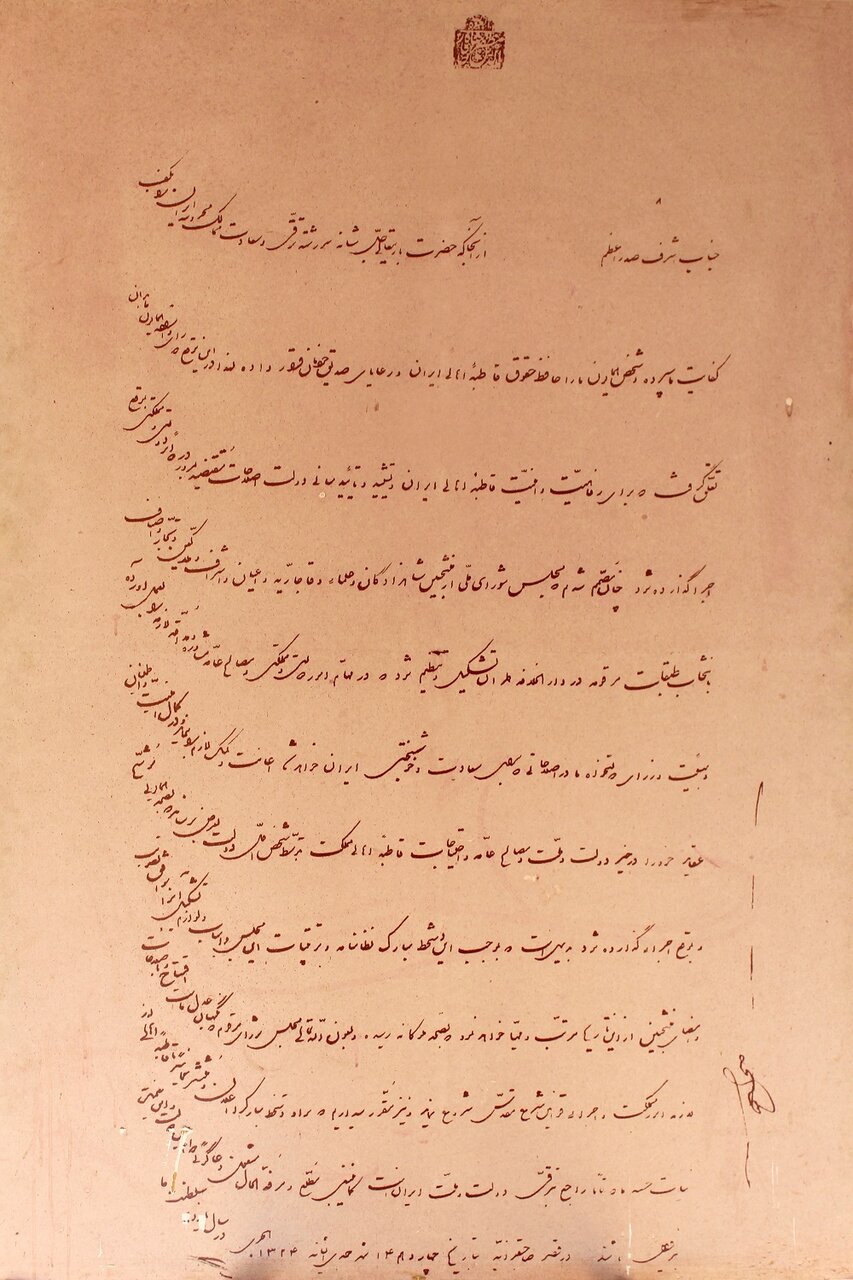 جناب اشرف صدراعظم از آنجا که حضرت باریتعالی جلّ شأنه سررشته ترقّی و سعادت ممالک محروسه ایران را بکف
کفایت ما سپرده و شخص همایون ما را حافظ حقوق قاطبهٔ اهالی ایران و رعایای صدیق خودمان قرار داده لهذا در این موقع که رأی و اراده همایون ما بدان
تعلق گرفت که برای رفاهیّت و امنیّت قاطبهٔ اهالی ایران و تشیید و تأیید مبانی دولت اصلاحات مُقتضیه بمرور در دوائر دولتی و مملکتی بموقع
اجرا گذارده شود چنان مُصمّم شدیم که مجلس شورای ملّی از منتخبین شاهزادگان و علماء و قاجاریّه و اعیان و اشراف و ملاکین و تجّار و اصناف
بانتخاب طبقات مرقومه در دارالخلافه طهران تشکیل و تنظیم شود که در مهامّ امور دولتی و مملکتی و مصالح عامّه مشاوره و مداقّه لازمه را بعمل آورده
و بهیئت وزرای دولتخواه ما در اصلاحاتی که برای سعادت و خوشبختی ایران خواهد شد اعانت و کمک لازم را بنماید و در کمال امنیّت و اطمینان
عقاید خود را در خیر دولت و ملّت و مصالح عامّه و احتیاجات قاطبهٔ اهالی مملکت بتوسّط شخص اوّل دولت بعرض برساند که بصحّه همایونی مُوشّح
و بموقع اجرا گذارده شود بدیهی است که بموجب این دستخط مبارک نظامنامه و ترتیبات این مجلس و اسباب و لوازم تشکیل آنرا موافق تصویب
و امضای منتخبین از این تاریخ مرتّب و مهیّا خواهد نمود که بصحّه ملوکانه رسیده و بعون الله تعالی مجلس شورای مرقوم که نگهبان عدل ماست افتتاح و باصلاحات
لازمه امور مملکت و اجراء قوانین شرع مقدّس شروع نماید و نیز مقُرّر میداریم که سواد دستخط مبارک را اعلان و منتشر نمایند تا قاطبهٔ اهالی از
نیات حسنه ما که تماماً راجع بترقّی دولت و ملّت ایران است کماینبغی مطّلع و مرفّه الحال مشغول دعاگوئی دوام این دولت و این نعمت
بی‌زوال باشند در قصر صاحبقرانیّه بتاریخ چهاردهم شهر جمادی الثانیه ۱۳۲۴ هجری در سال یازدهم سلطنت ما